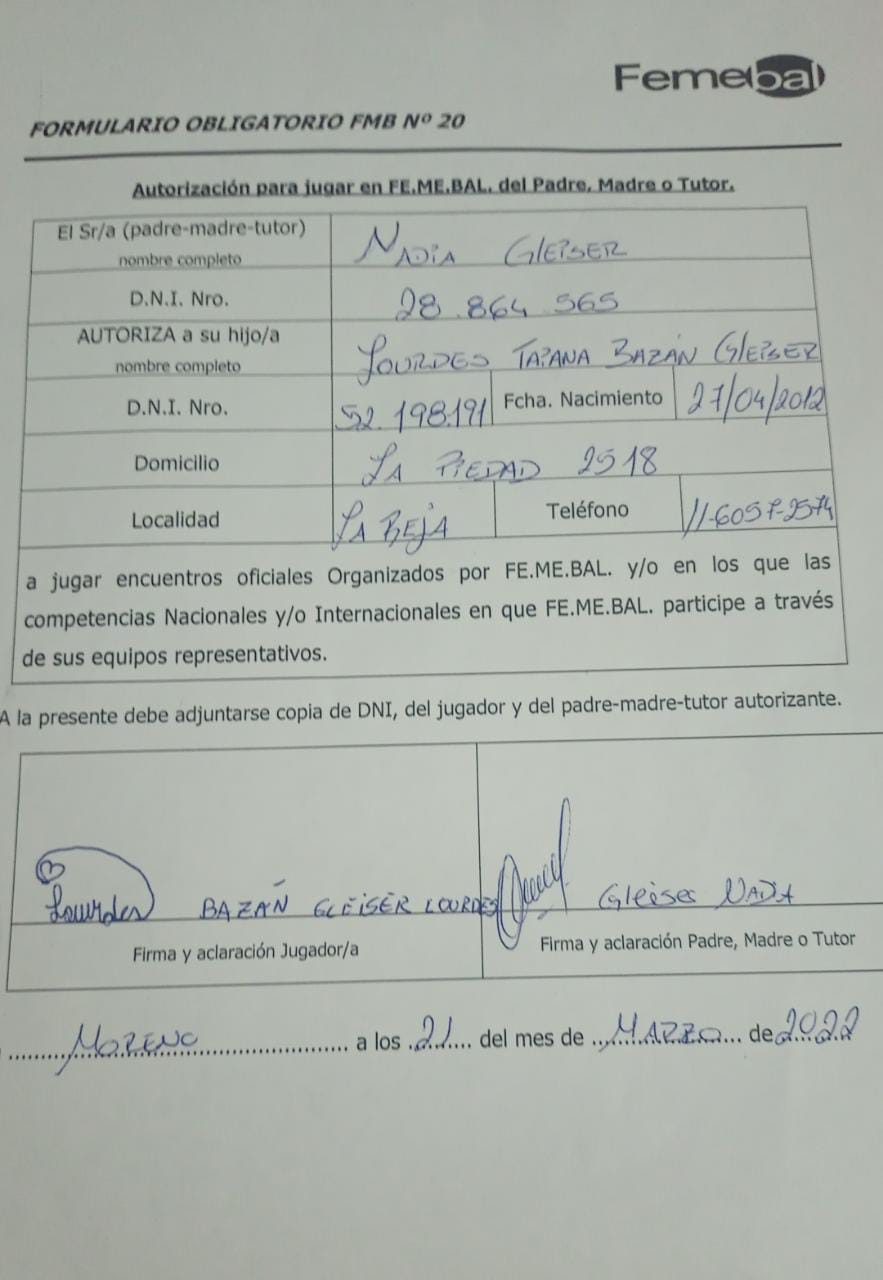 Femebal
FORMULARIO OBLIGATORIO FMB Nº 20
Autorización para jugar en FE.ME.BAL. del Padre, Madre o Tutor.
El Sr/a (padre-madre-tutor)
nombre completo
NADIA GLEISER
D.N.I. Nro.
28.864.565
AUTORIZA a su hijo/a
nombre completo
LOURDES TAIANA BAZÁN GLEISER
D.N.I. Nro.
52.198.191
Fcha. Nacimiento
27/04/2012
Domicilio
LA PIEDAD 2518
Localidad
LA REJA
Teléfono
11-6057-2574
a jugar encuentros oficiales Organizados por FE.ME.BAL. y/o en los que las
competencias Nacionales y/o Internacionales en que FE.ME.BAL. participe a través
de sus equipos representativos.
A la presente debe adjuntarse copia de DNI, del jugador y del padre-madre-tutor autorizante.
Lourdes BAZÁN GLEISER LOURDES
Firma y aclaración Jugador/a
Gleiser NADIA
Firma y aclaración Padre, Madre o Tutor
MORENO a los 21 del mes de MARZO de 2022